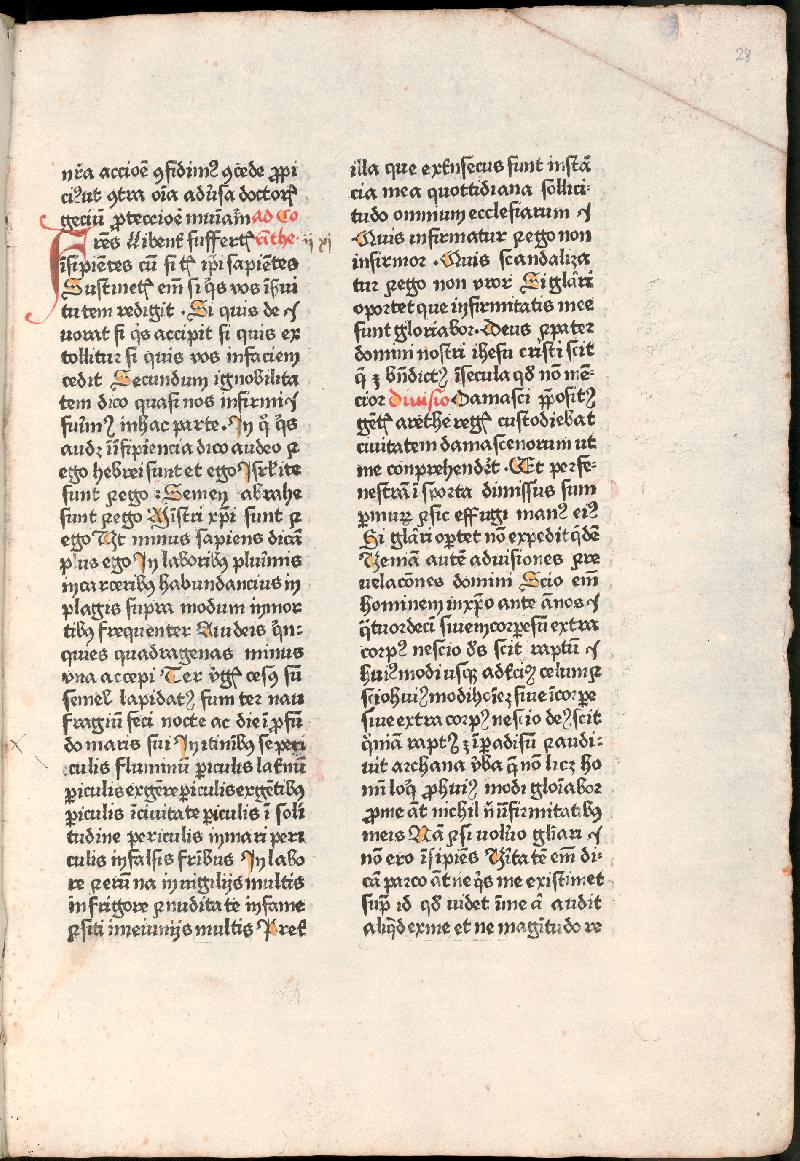 28
nr̃a accioẽ ꝯfidimꝰ ꝯcede ꝓpi
ciꝰ ut ꝯtra oĩa adũsa doctorꝭ
genciũ ꝓteccioẽ muniam̃ ad Co
Fres libent̃ suffertꝭ rinthe. ii xi
ĩsipiẽtes cũ sitꝭ ip̃i sapiẽtes
Sustinetꝭ em̃ si qͥs vos ĩ s̃uitu
tutem redigit . Si quis de
uorat si qͥs accipit si quis ex
tollitur si quis vos in faciem
cedit Secundum ignobilita
tem dico quasi nos infirmi
fuim̃ꝰ in hac parte. In qͦ qͥs
audꝫ ĩ ĩsipiencia dico audeo ꝛ
ego hebrei sunt et ego Isrl̃ite
sunt ꝛ ego : Semen abrahe
sunt ꝛ ego Mĩstri xp̃i sunt ꝛ
ego Ut minus sapiens dicã
plus ego In laboribꝰ plurimis
in carceribꝰ habundancius in
plagis supra modum in mor
tibꝰ frequenter A iudeis qͥn-
quies quadragenas minus
vna accepi Ter vͥgꝭ cesꝰ sũ
semel lapidatꝰ sum ter nau
fragiũ feci nocte ac die ĩ ꝓfũ
do maris fui In itĩnibꝰ sepe ꝑi
culis fluminũ ꝑiculis lat̃nũ
ꝑiculis ex geñe ꝑiculis ex gẽtibꝰ
ꝑiculis ĩ ciuitate ꝑiculis ĩ soli
tudine periculis in mari peri
culis in falsis fr̃ibus In labo
re ꝛ erũna in vigilijs multis
in frigore ꝛ nuditate in fame
ꝛ siti in ieiunijs multis Pret̃
illa que ext̃nsecus sunt instã
cia mea quottidiana sollici-
tudo omnium ecclesiarum
Quis infirmatur ꝛ ego non
infirmor . Quis scandaliza
tur ꝛ ego non vror Si glãri
oportet que infirmitatis mee
sunt gloriabor. Deus ꝛ pater
domini nostri ihesu cristi scit
qͥ ē bñdictꝰ ĩ secula qd̃ nõ mẽ-
cior diuisio Damasci ꝓpositꝰ
gẽtꝭ arethe regꝭ custodiebat
ciuitatem damascenorum ut
me conprehendẽt . Et per fe-
nestrã ĩ sporta dimissus sum
ꝑ murꝫ ꝛ sic effugi manꝰ eiꝰ
Si glãri oꝑtet nõ expedit qͥdẽ
Veniã autẽ ad visiones ꝛ re
uelacões domini Scio em̃
hominem in xp̃o ante ãnos
qͣtuordecĩ siue in corꝑe siũ extra
corpꝰ nescio dꝰs scit raptũ
huiꝰmodi usqꝫ ad t̃ciꝰ celum ꝛ
scio huiꝰmodi hoĩeꝫ siue ĩ corꝑe
siue extra corpꝰ nescio deꝰ scit
qͦniã raptꝰ ē ĩ padisũ ꝛ audi-
uit archana vͥba qͣ nõ licꝫ ho
mĩ loqͥ ꝓ huiꝰmodi gloĩabor
ꝓ me ãt nichil ñ ĩ ĩfirmitatibꝰ
meis Nã ꝛ si voluo gliari
nõ ero ĩsipiẽs Vͥitatẽ em̃ di-
cã parco ãt ne qͥs me existimet
sup̃ id qd̃ videt ĩ me ã audit
aliqͥd ex me et ne magĩtudo re